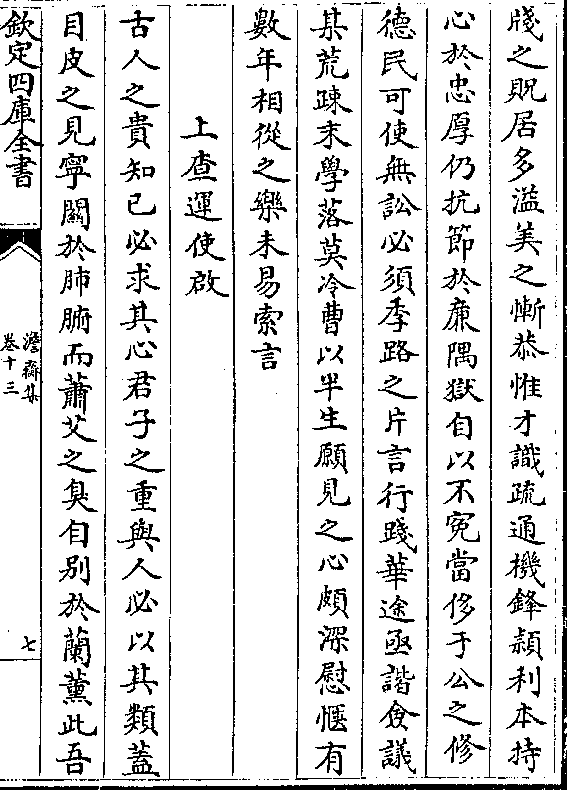 牋之貺居多溢美之慚恭惟才識疏通機鋒穎利本持
心於忠厚仍抗節於廉隅獄自以不冤當侈于公之修
德民可使無訟必須季路之片言行踐華途亟諧僉議
某荒疎末學落莫冷曹以半生願見之心頗深慰愜有
數年相從之樂未易索言
上查運使啟
古人之貴知己必求其心君子之重與人必以其類蓋
目皮之見寧關於肺腑而蕭艾之臭自別於蘭薰此吾
欽定四庫全書
澹齋集
卷十三
七